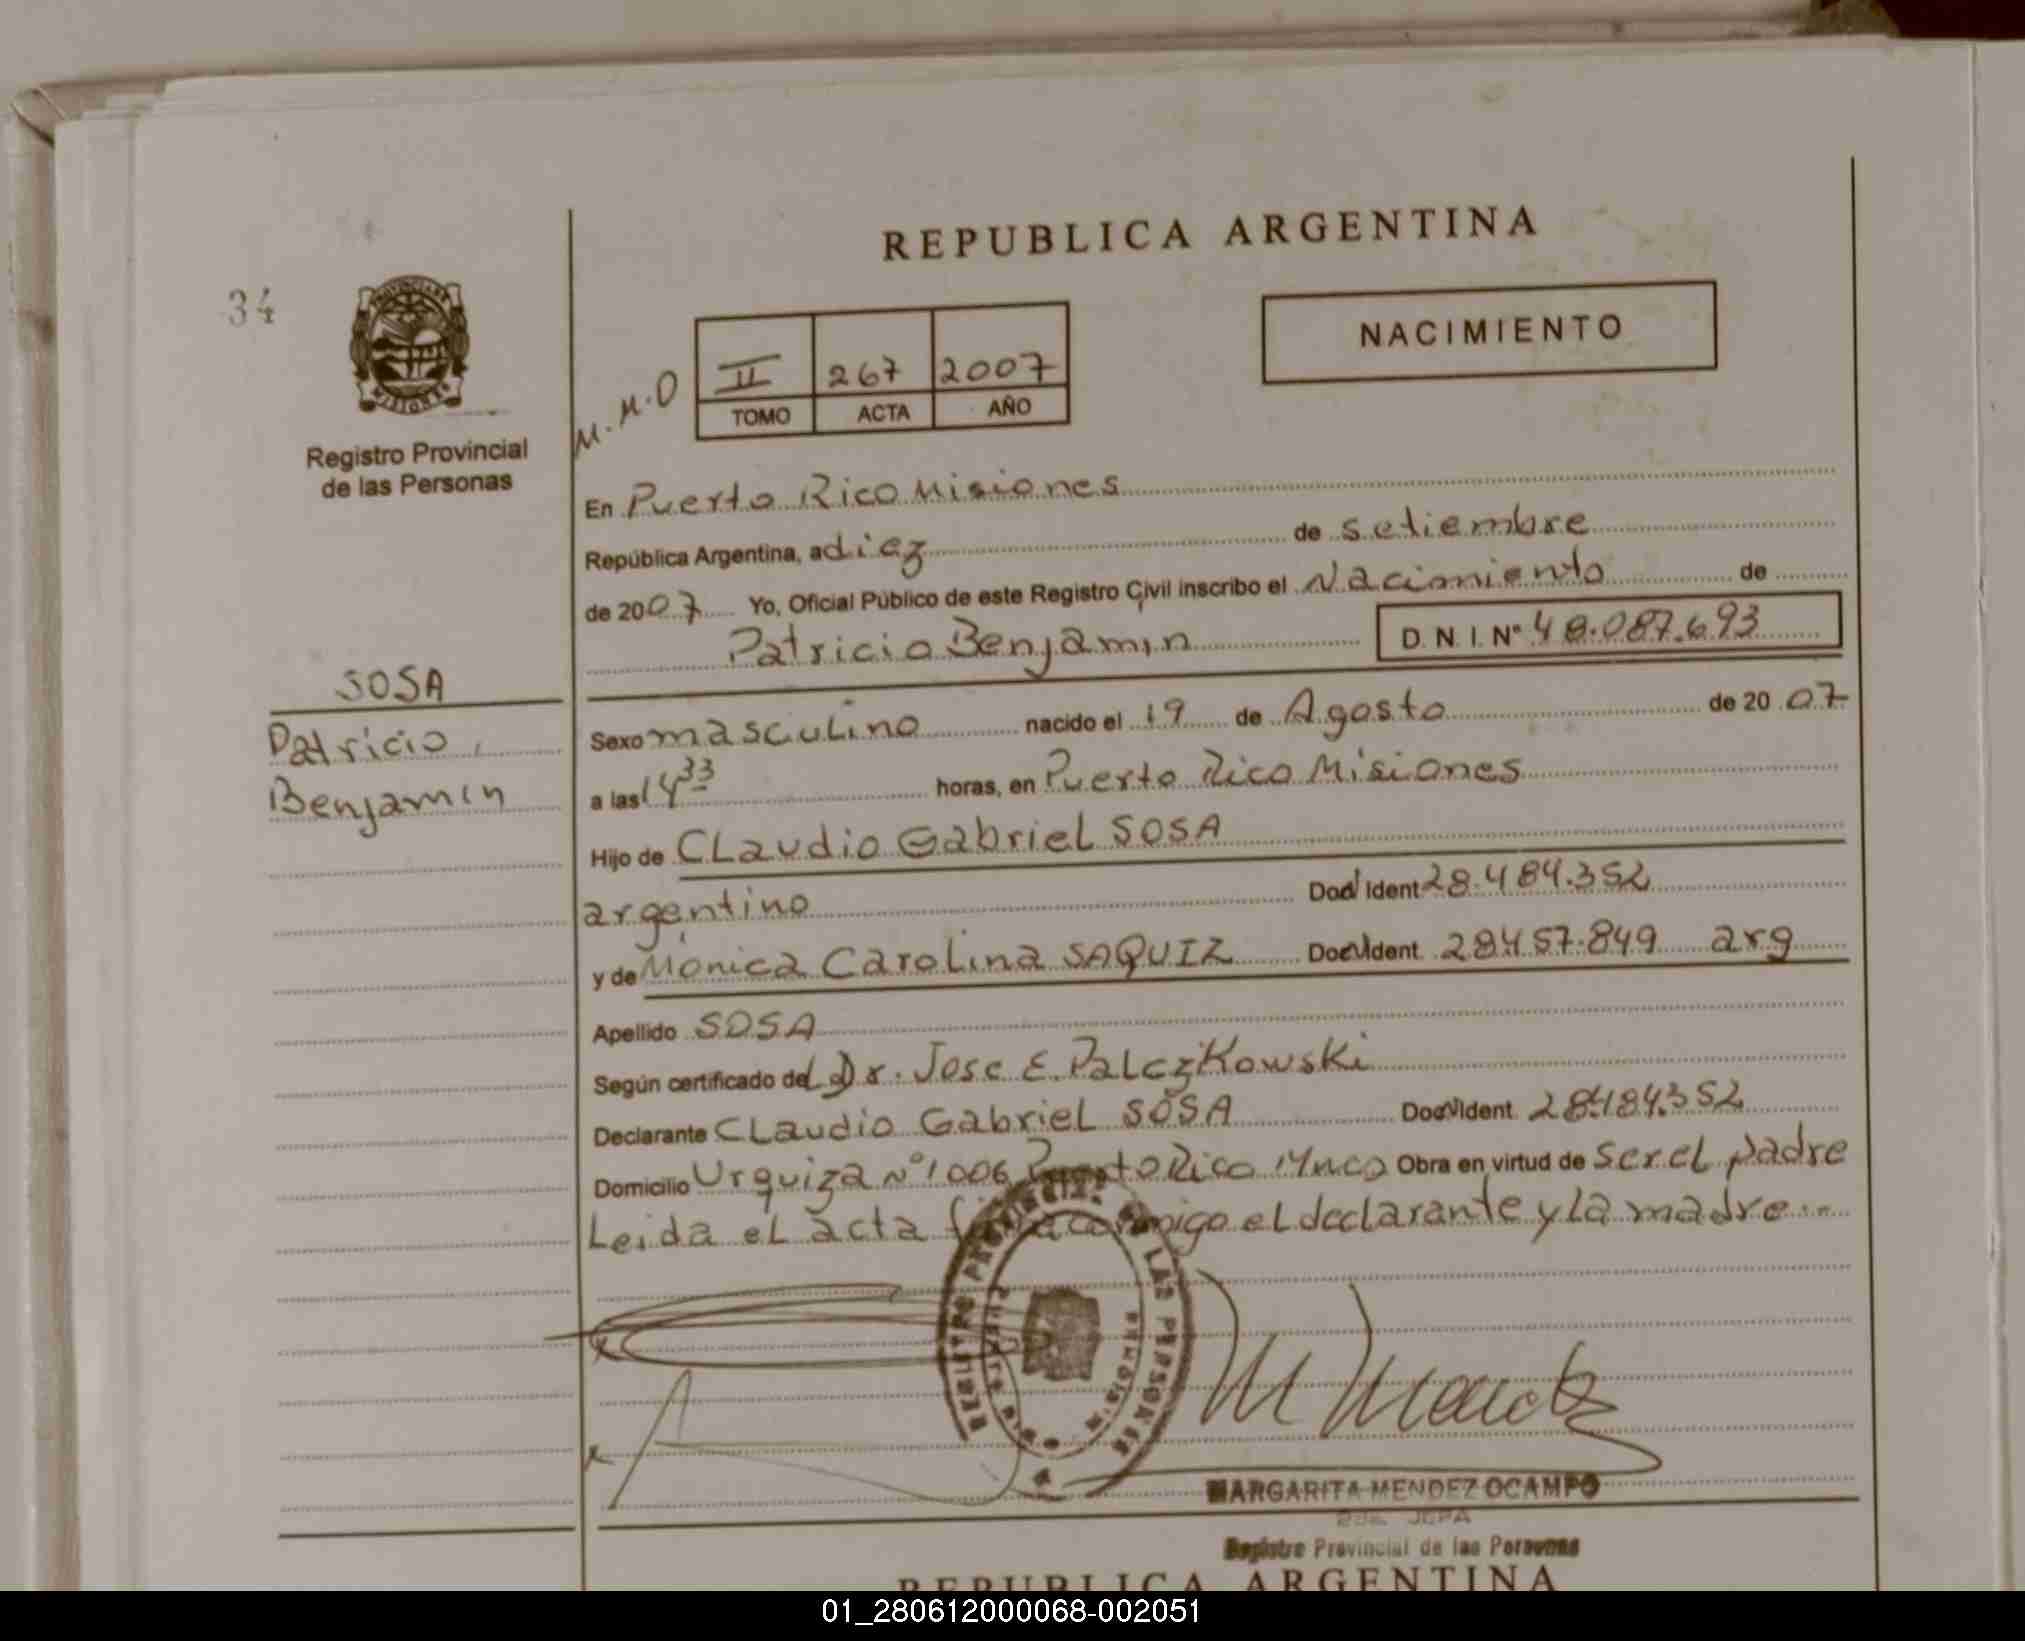 REPUBLICA ARGENTINA
34
NACIMIENTO
M.M.O
II 267 2007
TOMO ACTA AÑO
PROVINCIA DE
MISIONES
Registro Provincial
de las Personas
En Puerto Rico Misiones
República Argentina, a diez de setiembre
de 2007 Yo, Oficial Público de este Registro Civil inscribo el Nacimiento de
Patricio Benjamin D.N.I. Nº 48.087.693
SOSA
Patricio,
Benjamin
Sexo masculino nacido el 19 de Agosto de 2007
a las 14 33 horas, en Puerto Rico Misiones
Hijo de Claudio Gabriel SOSA
argentino Doc. Ident 28.484.352
y de Monica Carolina SAQUIZ Doc. Ident. 28.457.849 arg
Apellido SOSA
Según certificado del Dr. Jose E. Palczkowski
Declarante Claudio Gabriel SOSA Doc. Ident. 28.484.352
Domicilio Urquiza Nº 1006 Puerto Rico Mnes Obra en virtud de ser el padre
Leida el acta firma conmigo el declarante y la madre.-
REGISTRO PROVINCIAL DE LAS PERSONAS
PUERTO RICO MISIONES
MARGARITA MENDEZ OCAMPO
JEFA
Registro Provincial de las Personas
REPUBLICA ARGENTINA
01_280612000068-002051